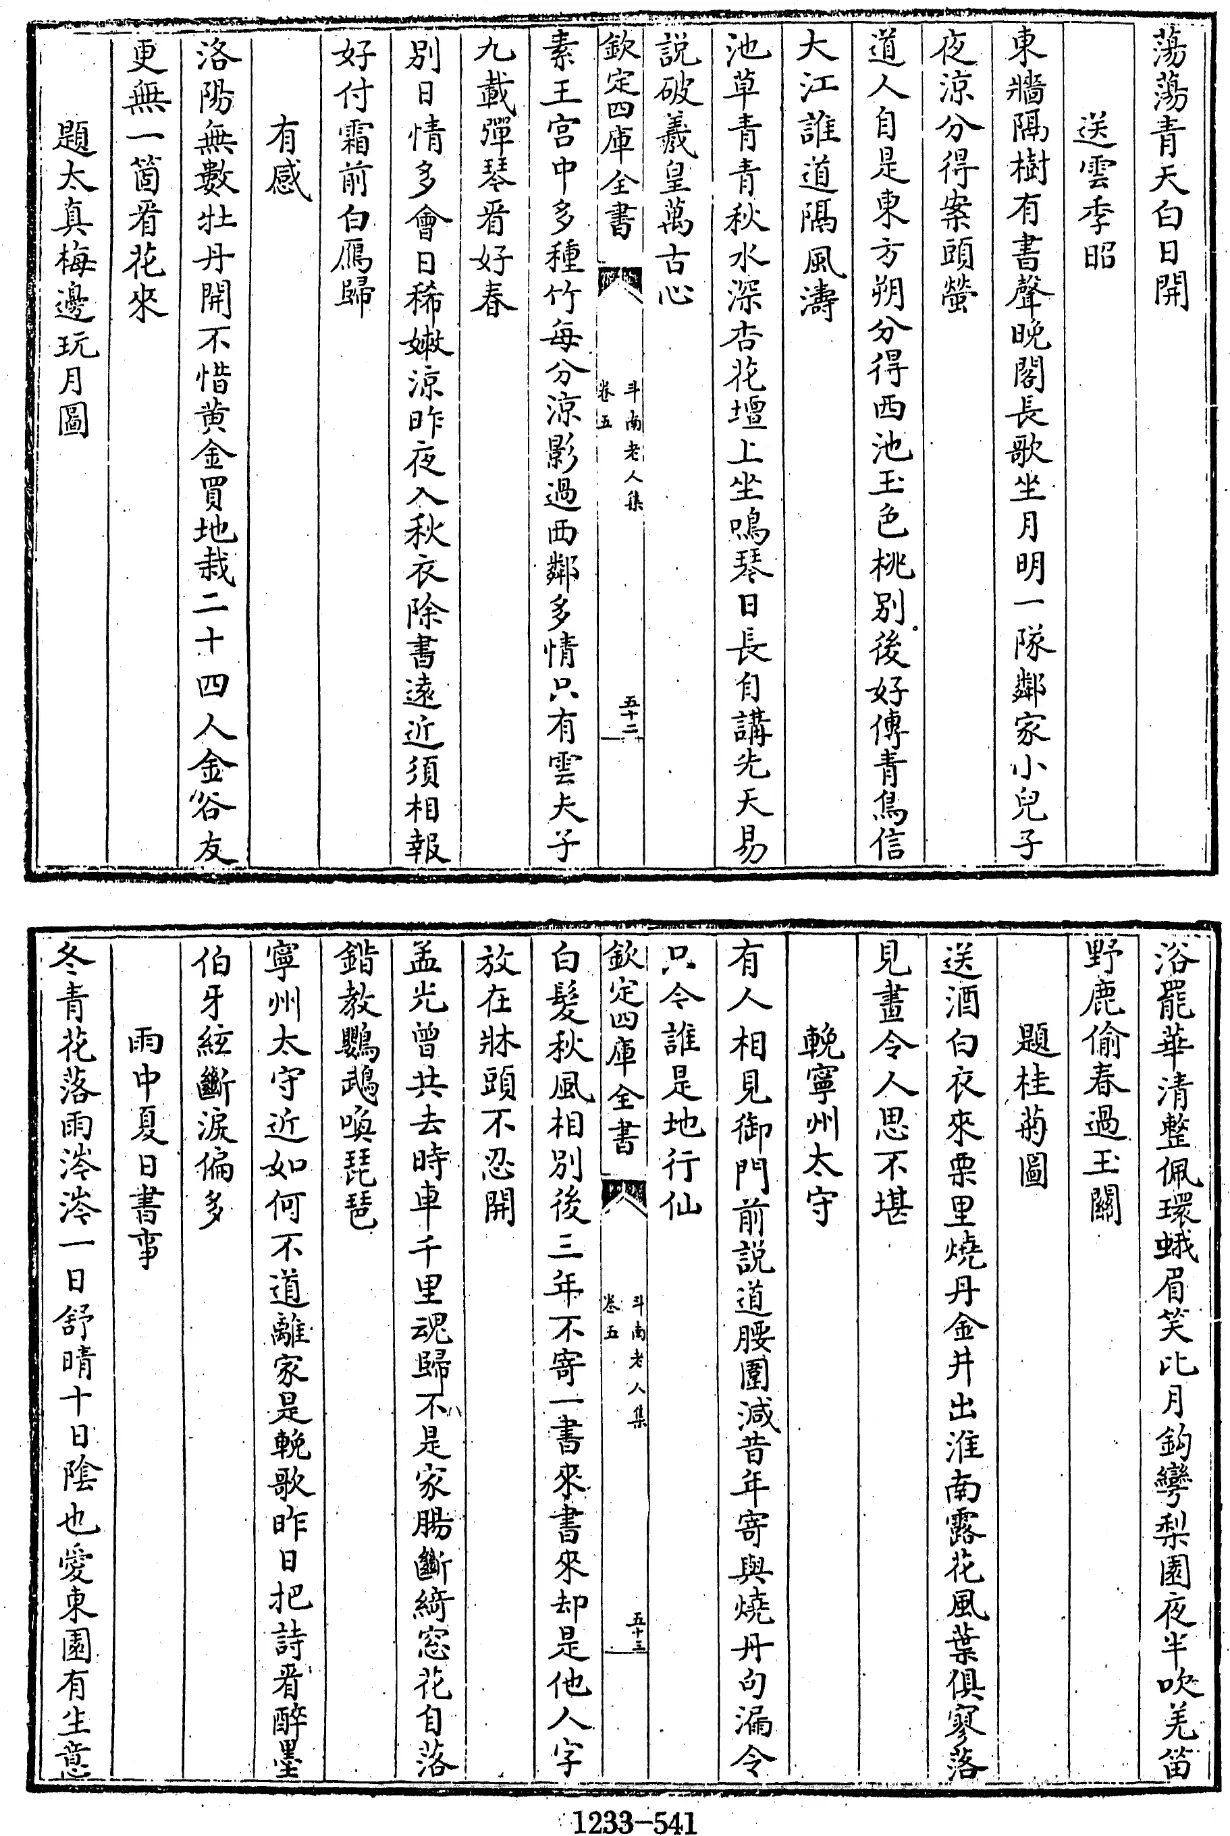 蕩蕩青天白日開
送雲季昭
東牆隔樹有書聲晚閣長歌坐月明一隊鄰家小兒子
夜涼分得案頭螢
道人自是東方朔分得西池玉色桃別後好傳青鳥信
大江誰道隔風濤
池草青青秋水深杏花壇上坐鳴琴日長自講先天易
説破羲皇萬古心
欽定四庫全書
斗南老人集
卷五
五十二
素王宫中多種竹每分涼影過西鄰多情只有雲夫子
九載彈琴看好春
別日情多會日稀嫩涼昨夜入秋衣除書遠近須相報
好付霜前白鴈歸
有感
洛陽無數牡丹開不惜黄金買地栽二十四人金谷友
更無一箇看花來
題太真梅邊玩月圖
浴罷華清整佩環蛾眉笑比月鈎彎梨園夜半吹羌笛
野鹿偷春過玉關
題桂菊圖
送酒白衣來栗里燒丹金井出淮南露花風葉俱寥落
見畫令人思不堪
輓寧州太守
有人相見御門前説道腰圍減昔年寄與燒丹句漏令
只今誰是地行仙
欽定四庫全書
斗南老人集
卷五
五十三
白髮秋風相別後三年不寄一書來書來却是他人字
放在牀頭不忍開
孟光曾共去時車千里魂歸不是家腸斷綺窓花自落
鍇教鸚鵡喚琵琶
寧州太守近如何不道離家是輓歌昨日把詩看醉墨
伯牙絃斷淚偏多
雨中夏日書事
冬青花落雨涔涔一日舒晴十日陰也愛東園有生意
1233-541